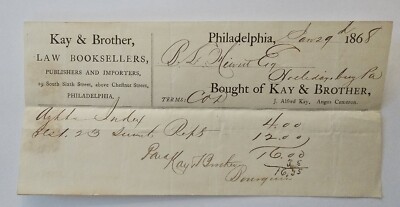 Kay & Brother,
LAW BOOKSELLERS,
PUBLISHERS AND IMPORTERS,
19 South Sixth Street, above Chestnut Street,
PHILADELPHIA.
Philadelphia, Jany 29th 1868
Esq
Hollidaysburg Pa
Bought of KAY & BROTHER,
J. Alfred Kay, Angus Cameron.
TERMS:
Index 4.00
23 Repts 12.00
16.00
Paid 35
Kay & Brother 16.35